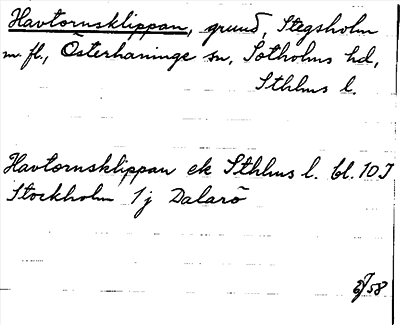 Havtornsklippan, grund, Stegsholm
m. fl., Österhaninge sn, Sotholms hd,
Sthlms l.
Havtornsklippan ek Sthlms l. bl. 10 I
Stockholm 1j Dalarö
58